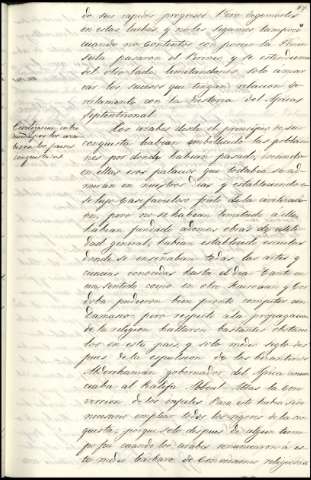 do sus rapidos progresos. Pero dejemosles
en estas luchas y no les sigamos tampoco
cuando no contentos con poner la Penin
sula pasaron el Pirineo y se estendieron
del otro lado, limitandonos solo a mar
car los sucesos que tengan relacion di
rectamente con la Historia del Africa
Septentrional.
Los arabes desde el principio de su
conquista habian embellecido las poblacio
nes por donde habian pasado, levantando
en ellas esos palacios que todavia se ad
miran en nuestros dias y estableciendo
el lujo fruto de la civilizacion
pero no se habian limitado a ello
habian fundado ademas obras de utili
dad general, habian establecido escuelas
donde se enseñaban todas las artes y
ciencias conocidas hasta el dia. Tanto en
un sentido como en otro Kairouan y Cor
doba pudieron bien pronto competir con
Damasco; pero respecto a la propagacion
de la religion hallaron bastantes obstacu
los en este pais, y solo medio siglo des
pues de la espulsion de los Bizantinos
Abderrhaman gobernador del Africa anun
ciaba al Kalifa Aboul Abbas la con
version de los infieles. Para ello hubo
necesario emplear todos los rigores de la con
quista, porque solo despues de algun tiem
po fue cuando los arabes renunciaron a es
te medio barbaro de conviccion religiosa